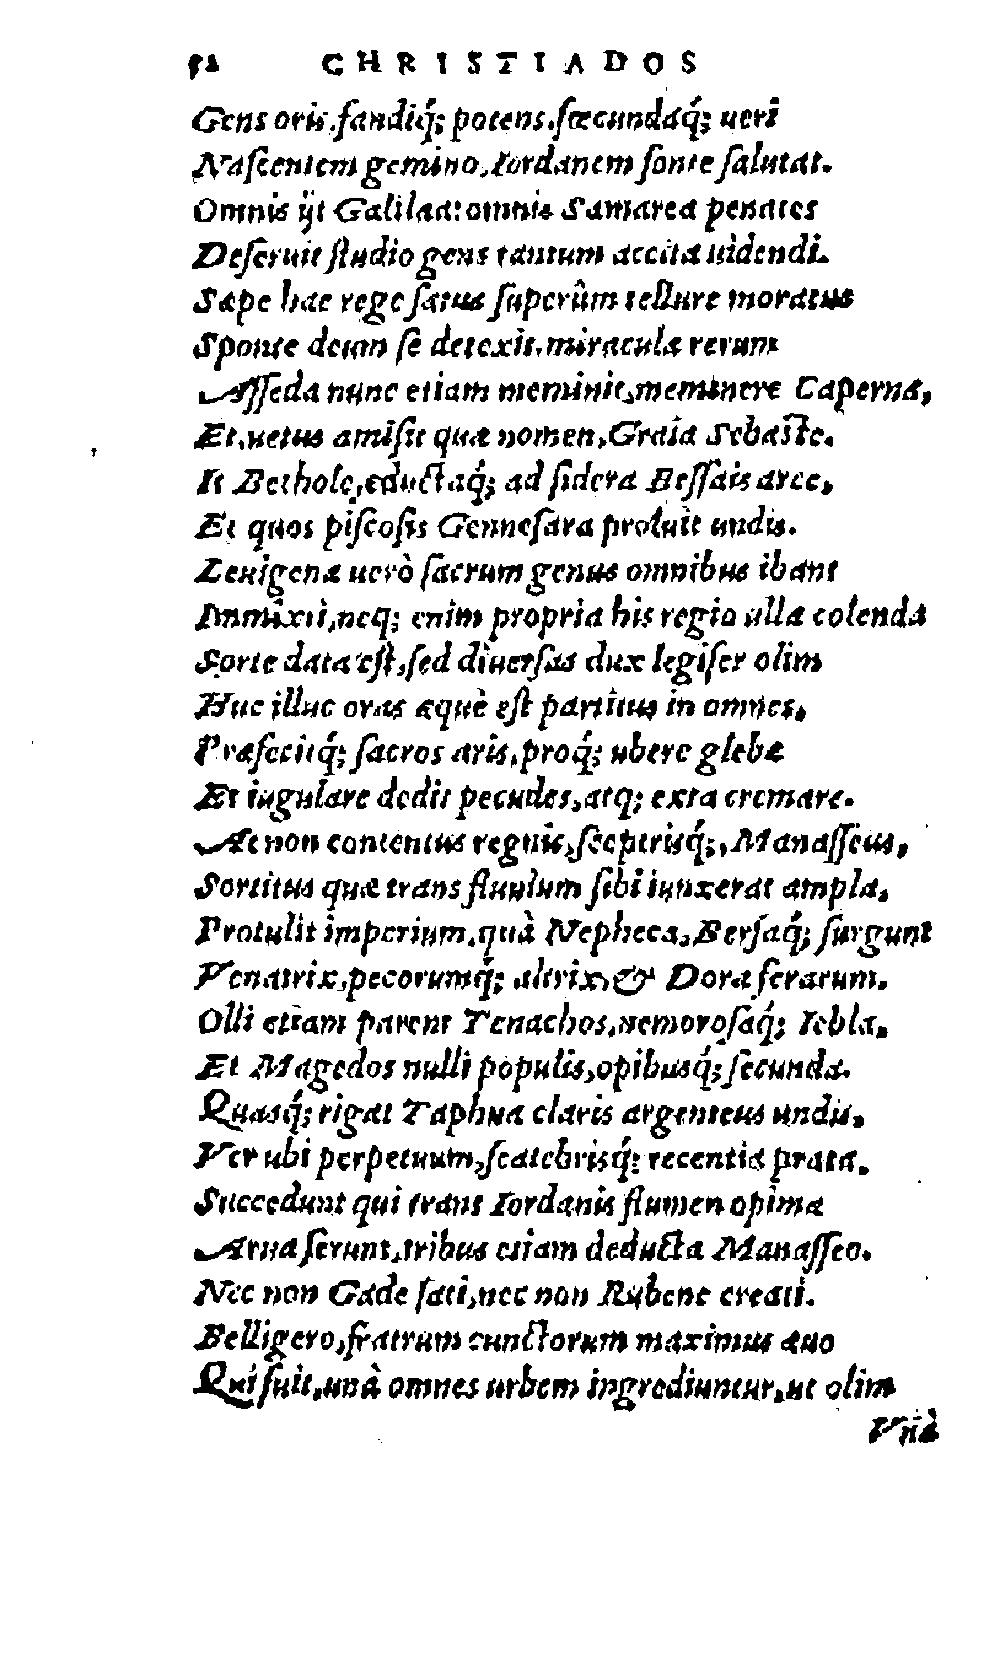 52 CHRISTIADOS
Gens oris, fandiq́; potens, fœcundaq́; ueri
Nascentem gemino, Iordanem fonte salutat.
Omnis ijt Galilæa: omnis Samarea penates
Deseruit studio gens tantum accita uidendi.
Sæpe hac rege satus superûm tellure moratus
Sponte deum se detexit, miracula rerum
Asseda nunc etiam meminit, meminere Caperna,
Et, uetus amisit quæ nomen, Graia Sebaste.
It Bethole, eductaq́; ad sidera Bessais arce,
Et quos piscosis Gennesara proluit undis.
Leuigenæ uerò sacrum genus omnibus ibant
Immixti, neq; enim propria his regio ulla colenda
Sorte data est, sed diuersas dux legifer olim
Huc illuc oras æquè est partitus in omnes,
Præfecitq́; sacros aris, proq́; ubere glebæ
Et iugulare dedit pecudes, atq; exta cremare.
At non contentus regnis, sceptrisq́;, Manasseus,
Sortitus quæ trans fluuium sibi iunxerat ampla,
Protulit imperium, quà Nepheca, Bersaq́; surgunt
Venatrix, pecorumq́; altrix, & Dora ferarum.
Olli etiam parent Tenachos, nemorosaq́; Iebla,
Et Magedos nulli populis, opibusq́; secunda.
Quasq́; rigat Taphua claris argenteus undis,
Ver ubi perpetuum, scatebrisq́; recentia prata.
Succedunt qui trans Iordanis flumen opima
Arua serunt, tribus etiam deducta Manasseo.
Nec non Gade sati, nec non Rubene creati.
Belligero, fratrum cunctorum maximus æuo
Qui fuit, unà omnes urbem ingrediuntur, ut olim
Vnà